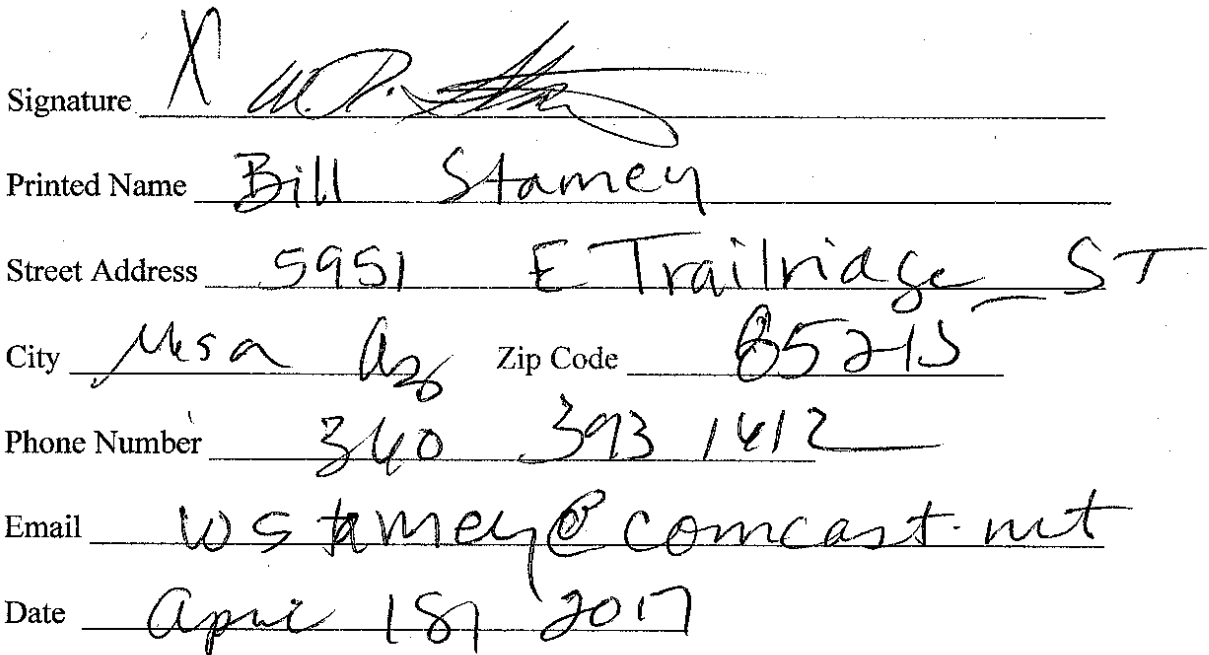 Signature X W. P. Stamey
Printed Name Bill Stamey
Street Address 5951 E Trailridge ST
City Mesa Az Zip Code 85215
Phone Number 360 393 1412
Email wstamey@comcast.net
Date April 18, 2017